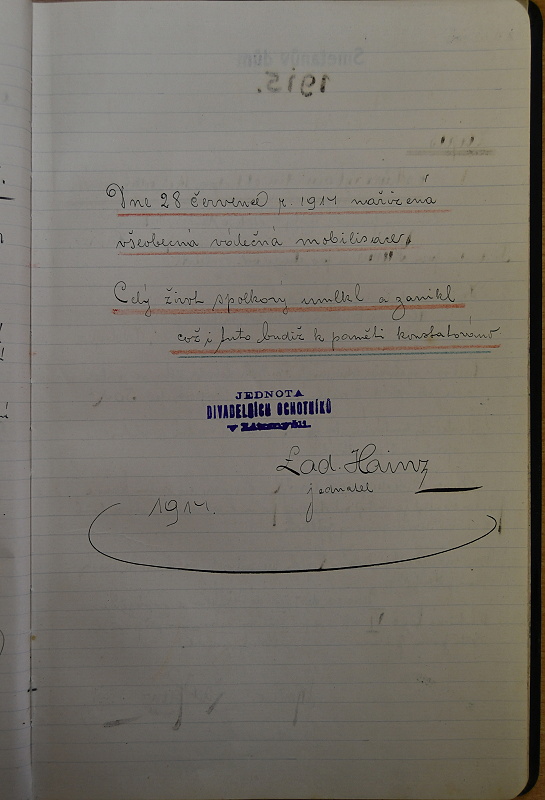 Dne 28 července r. 1914 nařízena
všeobecná válečná mobilisace,
Celý život spolkový umlkl a zanikl
což i tuto budiž k paměti konstatováno
JEDNOTA
DIVADELNÍCH OCHOTNÍKŮ
v
Lad. Hainz
jednatel
1914.